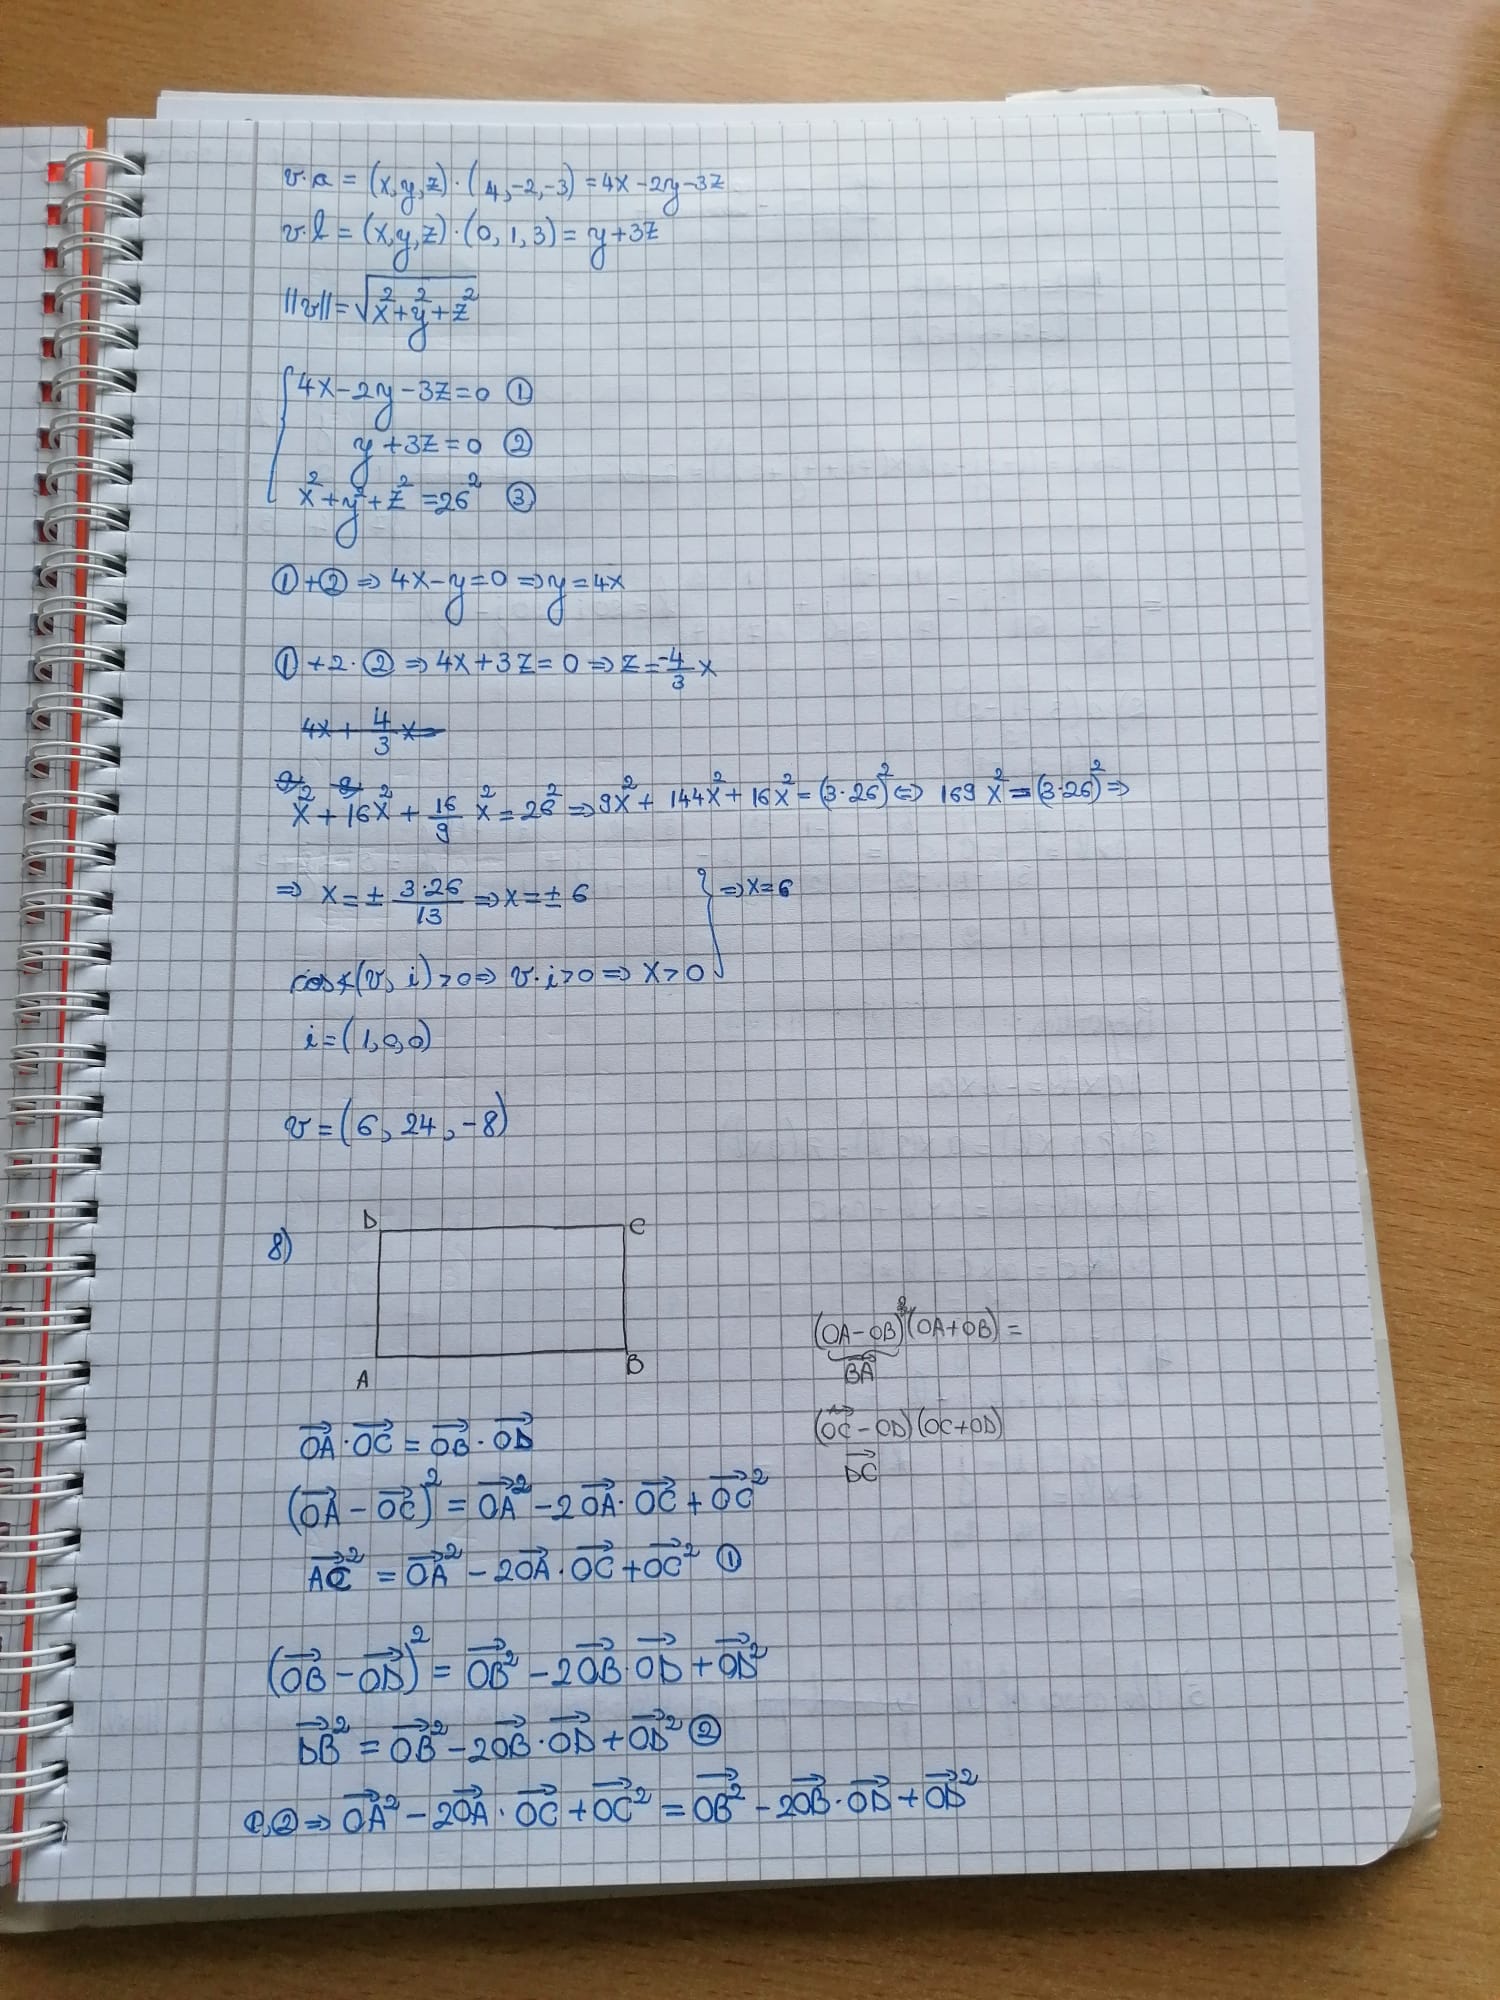 v·a = (x,y,z)·(4,-2,-3) = 4x-2y-3z
v·b = (x,y,z)·(0,1,3) = y+3z
||v|| = √(x²+y²+z²)
{ 4x-2y-3z=0 ①
y+3z=0 ②
x²+y²+z²=26² ③
①+② ⇒ 4x-y=0 ⇒ y=4x
①+2·② ⇒ 4x+3z=0 ⇒ z=-4/3 x
4x+4/3 x=
x²+16x²+16/9 x²=26² ⇒ 9x²+144x²+16x²=(3·26)² ⇔ 169x²=(3·26)² ⇒
⇒ x=± 3·26/13 ⇒ x=±6 } ⇒ x=6
cos∢(v,i)>0 ⇒ v·i>0 ⇒ x>0
i=(1,0,0)
v=(6,24,-8)
8)
D C
A B
(OA-OB)(OA+OB)=
BA→
(OC→-OD)(OC+OD)
DC→
OA→·OC→=OB→·OD→
(OA→-OC→)²=OA→²-2OA→·OC→+OC→²
AC→²=OA→²-2OA→·OC→+OC→² ①
(OB→-OD→)²=OB→²-2OB→·OD→+OD→²
DB→²=OB→²-2OB→·OD→+OD→² ②
①,② ⇒ OA→²-2OA→·OC→+OC→²=OB→²-2OB→·OD→+OD→²